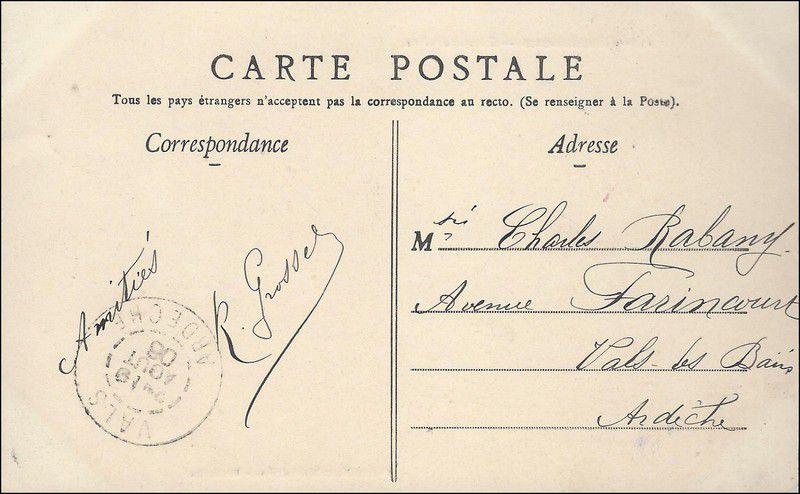 CARTE POSTALE
Tous les pays étrangers n'acceptent pas la correspondance au recto. (Se renseigner à la Poste).
Correspondance
Adresse
Amitiés
R. Grosse
M Charles Rabany
Avenue Farincourt
Vals-les Bains
Ardèche
VALS
ARDÈCHE
AOUT
08